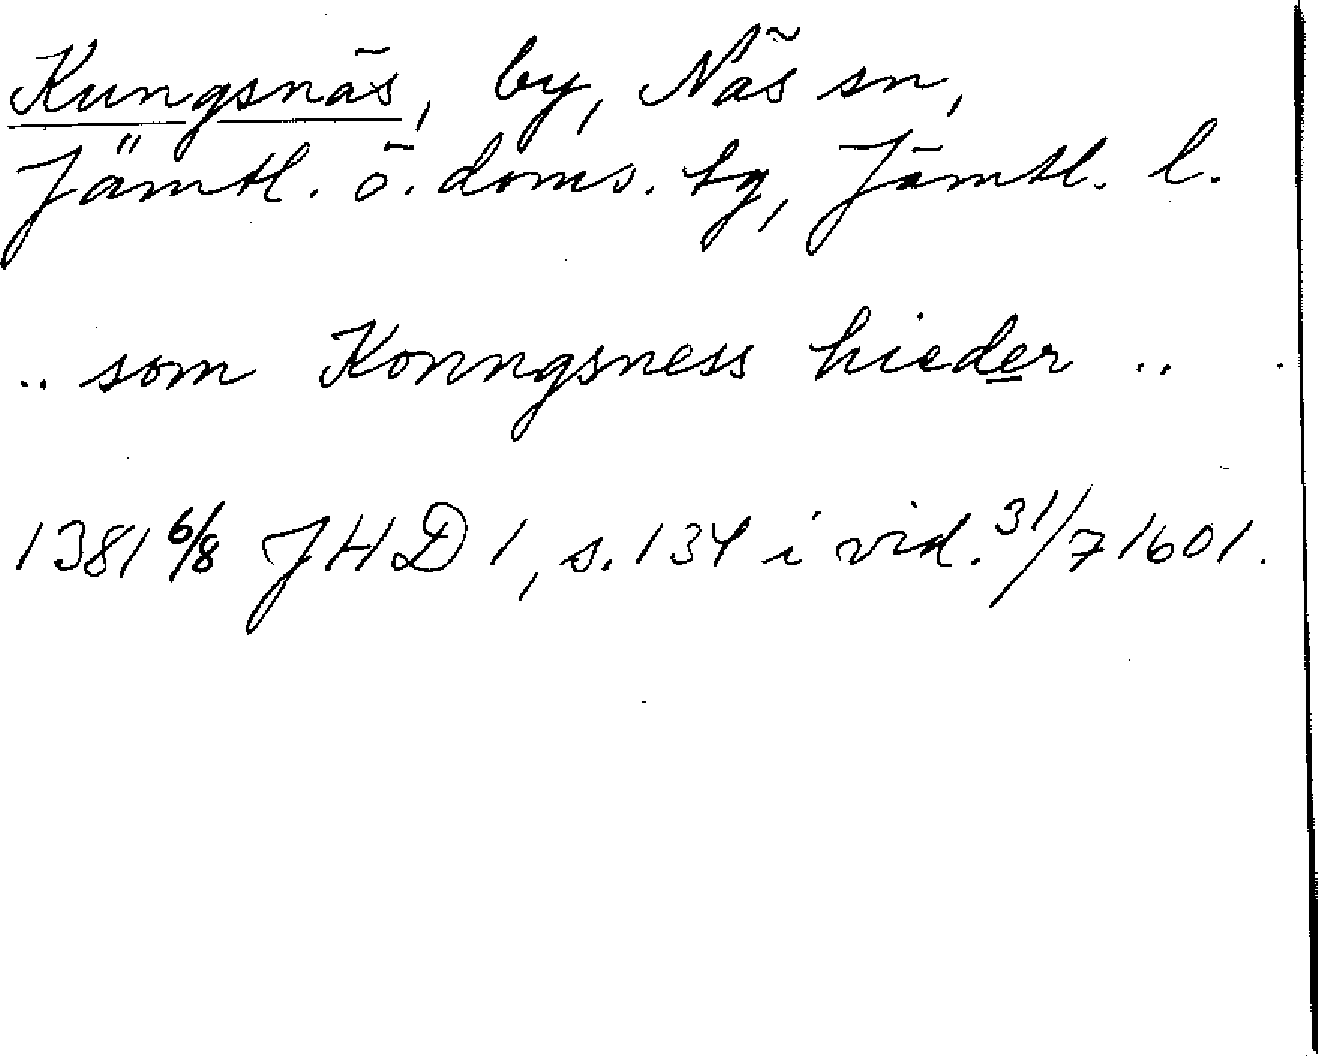 Kungsnäs, by, Näs sn,
Jämtl. ö. doms. tg, Jämtl. l.
.. som Konngsness hieder ..
1381 6/8 JHD 1, s. 134 i vid. 31/7 1601.